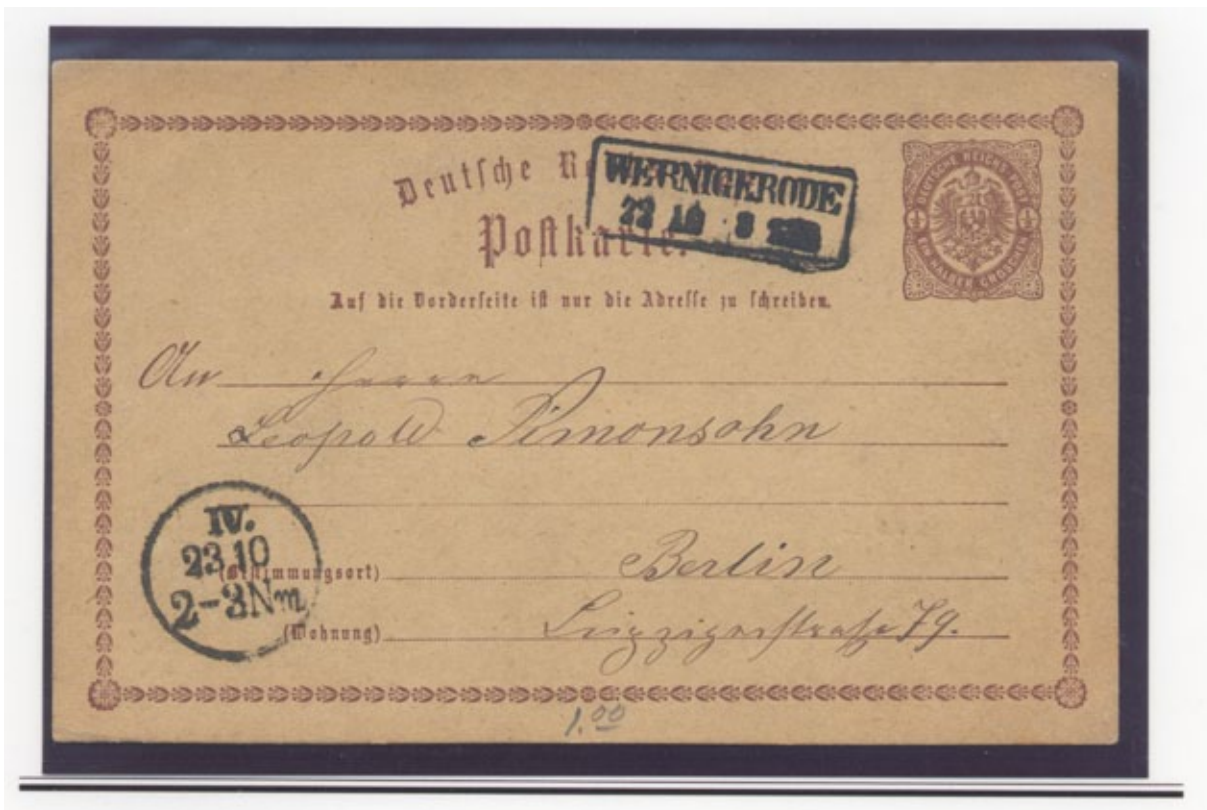 Deutsche
WERNIGERODE
22 10 8
Postkarte.
DEUTSCHE REICHS-POST
½ ½
EIN HALBER GROSCHEN
Auf die Vorderseite ist nur die Adresse zu schreiben.
An Herrn
Leopold Simonsohn
IV.
23 10
2-3Nm
(Bestimmungsort) Berlin
(Wohnung) Leipzigerstraße 79.
1.00